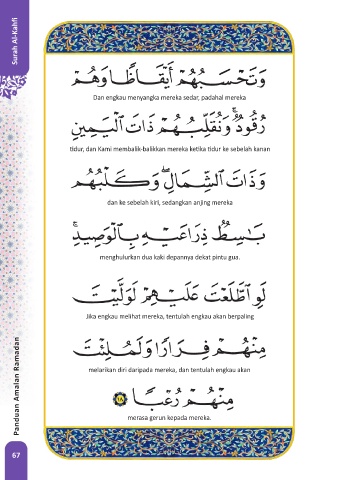 Surah Al-Kahfi
وَتَحْسَبُهُمْ أَيْقَاظًا وَهُمْ
Dan engkau menyangka mereka sedar, padahal mereka
رُقُودٌ ۚ وَنُقَلِّبُهُمْ ذَاتَ ٱلْيَمِينِ
tidur, dan Kami membalik-balikkan mereka ketika tidur ke sebelah kanan
وَذَاتَ ٱلشِّمَالِ ۖ وَكَلْبُهُم
dan ke sebelah kiri, sedangkan anjing mereka
بَٰسِطٌ ذِرَاعَيْهِ بِٱلْوَصِيدِ ۚ
menghulurkan dua kaki depannya dekat pintu gua.
لَوِ ٱطَّلَعْتَ عَلَيْهِمْ لَوَلَّيْتَ
Jika engkau melihat mereka, tentulah engkau akan berpaling
مِنْهُمْ فِرَارًا وَلَمُلِئْتَ
melarikan diri daripada mereka, dan tentulah engkau akan
مِنْهُمْ رُعْبًا ١٨
merasa gerun kepada mereka.
Panduan Amalan Ramadan
67